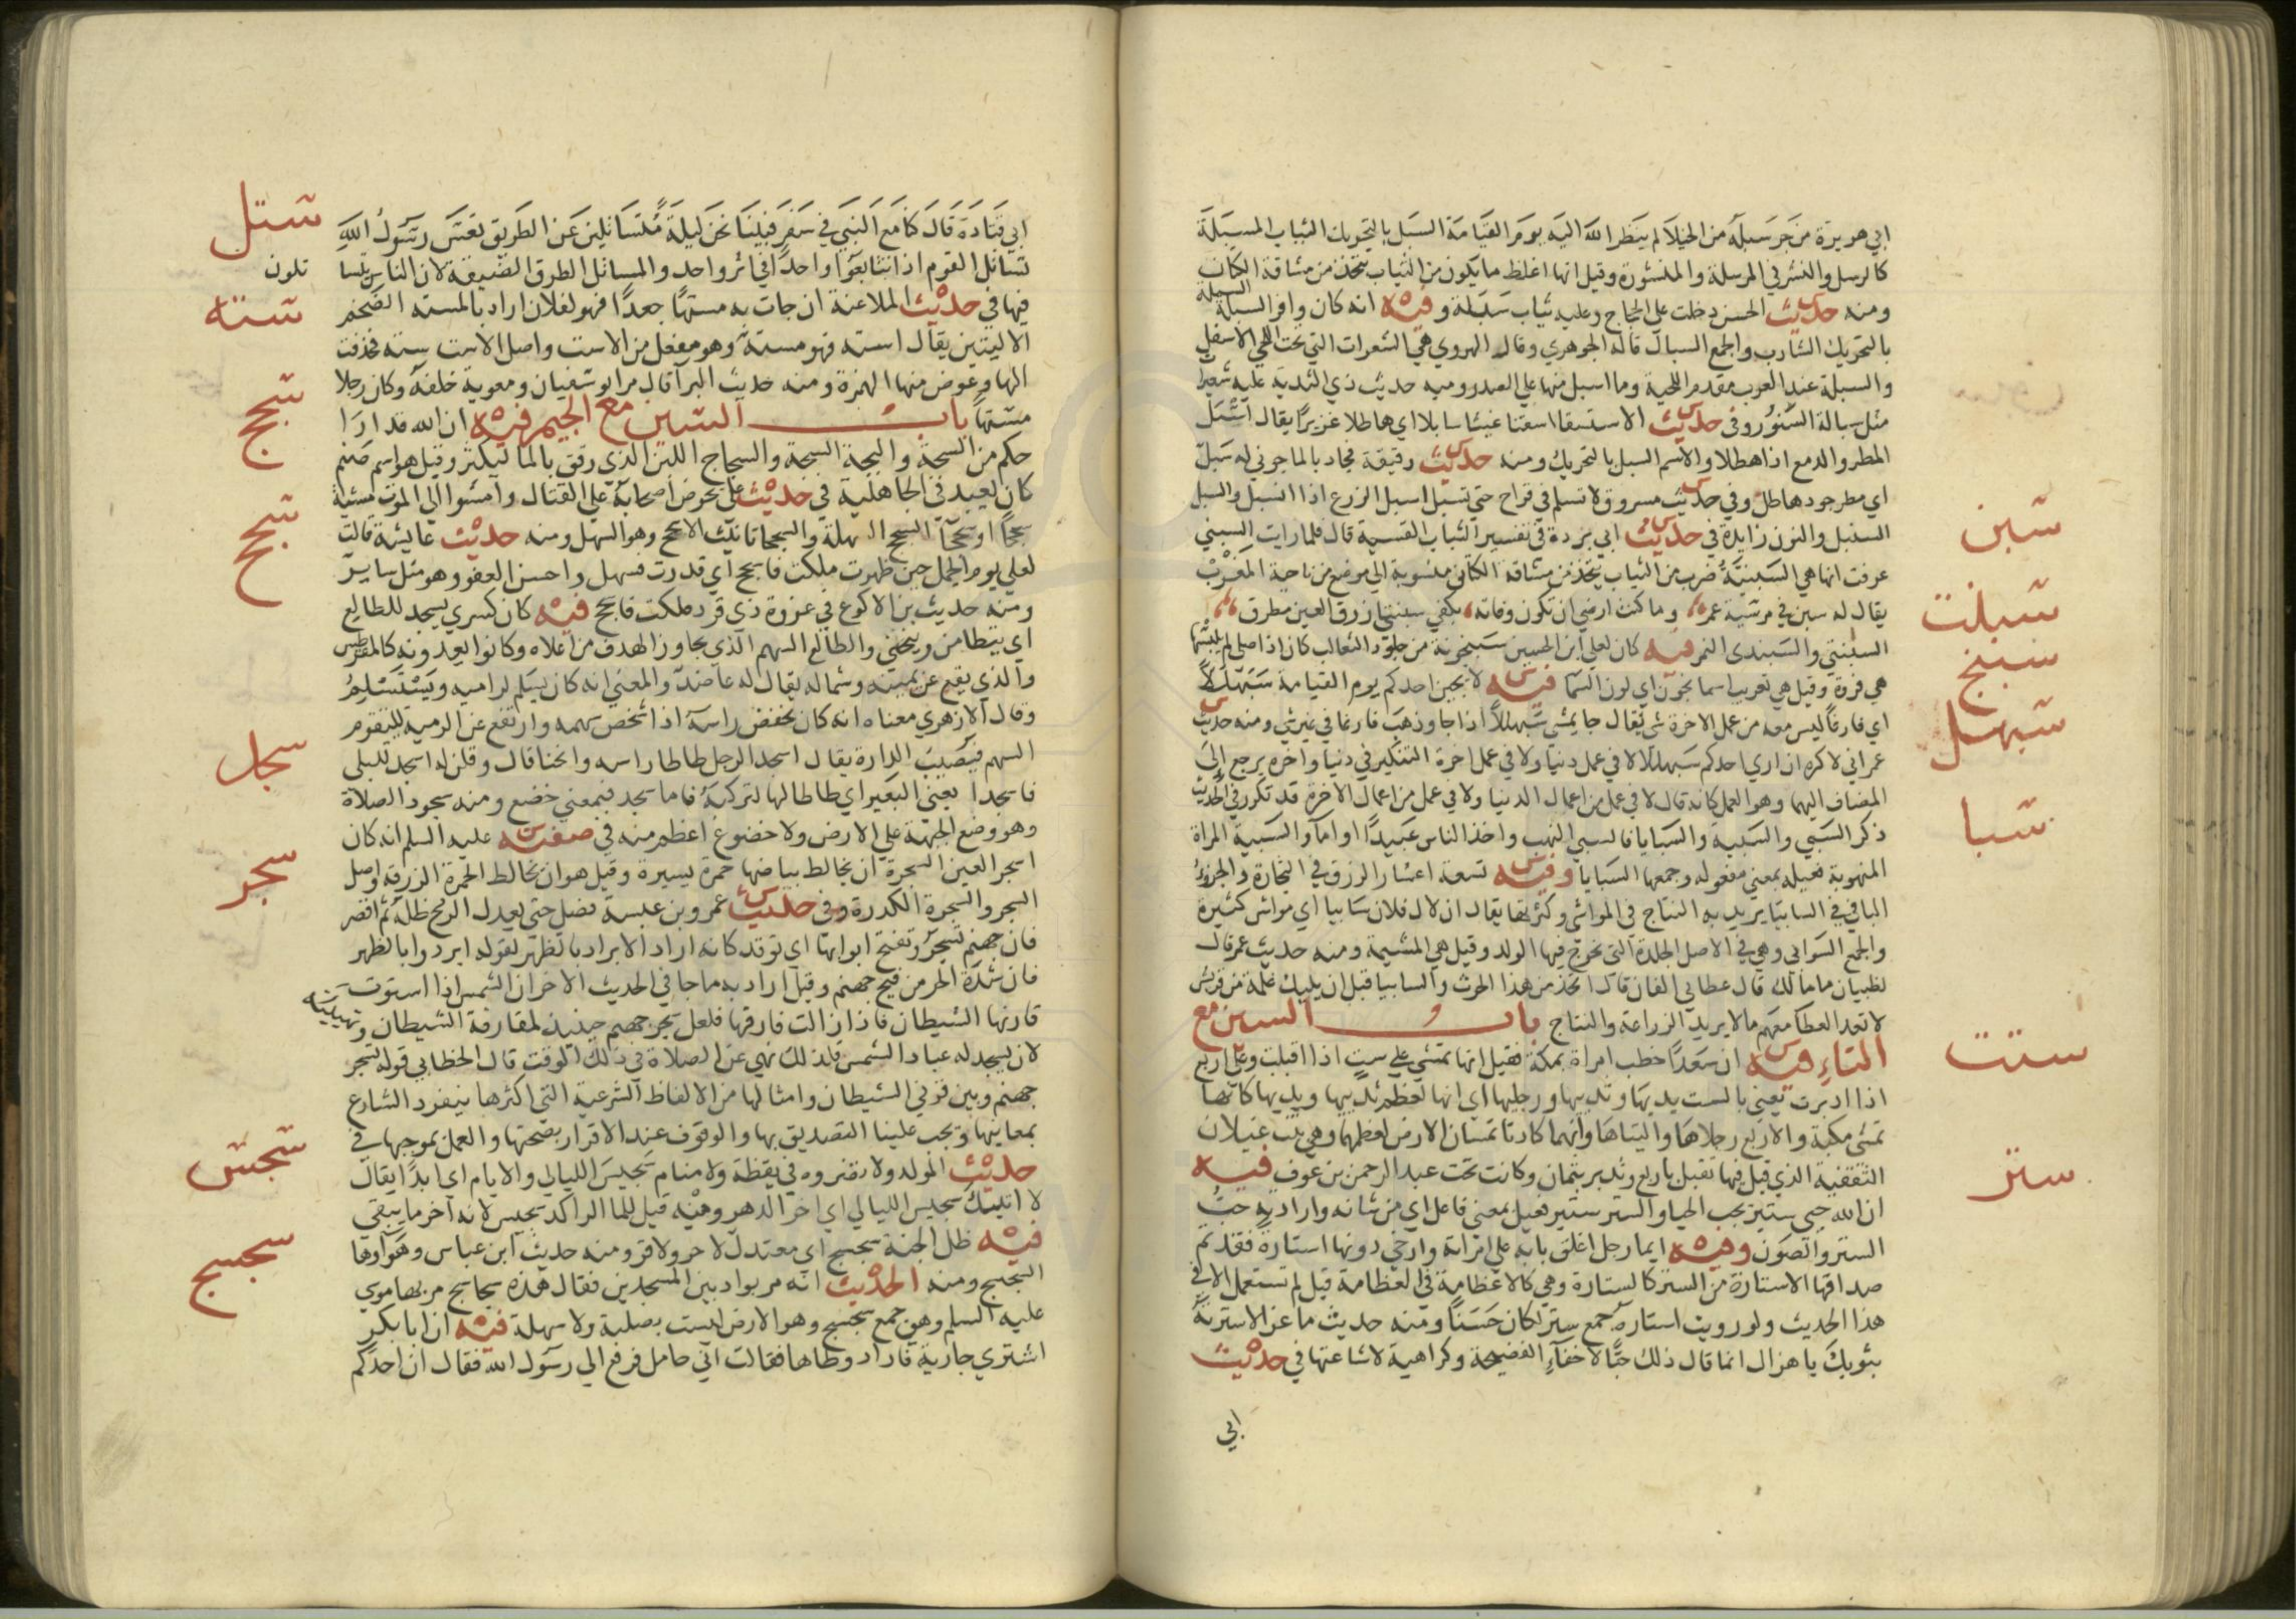 ابي هريرة من جر سبله من الخيلا لم ينظر الله اليه يوم القيامة السبل بالتحريك الثياب المسبلة
كالرسل والنشر في المرسلة والمنشورة وقيل انها اغلظ ما يكون من الثياب تتخذ من مشاقة الكتان
ومنه حديث الحسن دخلت على الحجاج وعليه ثياب سبلة وفيه انه كان وافر السبلة السبلة
بالتحريك الشارب والجمع السبال قاله الجوهري وقال الهروي هي الشعرات التي تحت اللحي الاسفل
والسبلة عند العرب مقدم اللحية وما اسبل منها علي الصدر ومنه حديث ذي الثدية عليه شعيرات
مثل سبالة السنور وفي حديث الاستسقا اسقنا غيثا سابلا اي هاطلا غزيرا يقال اسبل
المطر والدمع اذا هطلا والاسم السبل بالتحريك ومنه حديث رقيقة فجاد بالما جوني له سبل
اي مطر جود هاطل وفي حديث مسروق لا تسلم في قراح حتي تسبل اسبل الزرع اذا سنبل والسبل
السنبل والنون زايدة في حديث ابي بردة في تفسير الثياب القسية قال فلما رايت السبني
عرفت انها هي السبنية ضرب من الثياب تتخذ من مشاقة الكتان منسوبة الي موضع من ناحية المغرب
يقال له سبن في مرثية عمر وما كنت ارجي ان تكون وفاته بكفي سبنتي ازرق العين مطرق
السبنتي والسبندى النمر فيه كان لعلي ابن الحسين سبنجونة من جلود الثعالب كان اذا صلي لم يلبسها
هي فروة وقيل هي تعريب اسما نجون اي لون السما فيه لا يجين احدكم يوم القيامة سبهللا
اي فارغا ليس معه من عمل الاخرة شي يقال جا يمشي سبهللا اذا جا وذهب فارغا في غير شي ومنه حديث
عمر اني لاكره ان اري احدكم سبهللا لا في عمل دنيا ولا في عمل اخرة التنكير في دنيا واخره يرجع الي
المضاف اليهما وهو العمل كانه قال لا في عمل من اعمال الدنيا ولا في عمل من اعمال الاخرة قد تكرر في الحديث
ذكر السبي والسبية والسبايا فالسبي النهب واخذ الناس عبيدا او اما والسبية المراة
المنهوبة فعيله بمعني مفعوله وجمعها السبايا وفيه تسعة اعشار الرزق في التجارة والجزو
الباقي في السابيا يريد به النتاج في المواشي وكثرتها يقال ان لال فلان سابيا اي مواشي كثيرة
والجمع السوابي وهي في الاصل الجلدة التي تخرج فيها الولد وقيل هي المشيمة ومنه حديث عمر قال
لظبيان ما مالك قال عطاي الفان قال اتخذ من هذا الحرث والسابيا قبل ان يليك غلمة من قريش
لا تعد العطا معهم مالا يريد الزراعة والنتاج باب السين مع
التاء فيه ان سعدا خطب امراة بمكة فقيل انها تمشي علي ست اذا اقبلت وعلي اربع
اذا ادبرت يعني بالست يديها وثدييها ورجليها اي انها لعظم ثدييها ويديها كانها
تمشي مكبة والاربع رجلاها واليتاها وانهما كادتا تمسان الارض لعظمهما وهي بنت غيلان
الثقفية الذي قيل فيها تقبل باربع وتدبر بثمان وكانت تحت عبد الرحمن بن عوف فيه
ان الله حيي ستير يحب الحيا والستر ستير فعيل بمعني فاعل اي من شانه وارادته حب
الستر والصون وفيه ايما رجل اغلق بابه علي امراته وارخي دونها استارة فقد تم
صداقها الاستارة من الستر كالستارة وهي كالاعظامة في العظامة قيل لم تستعمل الا في
هذا الحديث ولو رويت استاره جمع ستر لكان حسنا ومنه حديث ماعز الا سترته
بثوبك يا هزال انما قال ذلك حبا لاخفاء الفضيحة وكراهية لاشاعتها في حديث
ابي
سبن
سبنت
سبنج
سبهل
سبا
ستت
ستر
ابي قتادة قال كنا مع النبي في سفر فبينا نحن ليلة متساتلين عن الطريق نعس رسول الله
تساتل القوم اذا تتابعوا واحدا في اثر واحد والمساتل الطرق الضيقة لان الناس يتسا
تلون
فيها في حديث الملاعنة ان جات به مستها جعدا فهو لفلان اراد بالمسته الضخم
الاليتين يقال استه فهو مسته وهو مفعل من الاست واصل الاست سته فحذفت
الها وعوض منها الهمزة ومنه حديث البرآ قال مر ابو سفيان ومعوية خلفه وكان رجلا
مستها باب السين مع الجيم فيه ان الله قد ارا
حكم من السجة والبجة السجة والسجاج اللبن الذي رقق بالما ليكثر وقيل هو اسم صنم
كان يعبد في الجاهلية في حديث علي يحرض اصحابه علي القتال وامشوا الي الموت مشية
سجحا او سجحا السجح السهلة والسجحا تانيث الاسجح وهو السهل ومنه حديث عايشة قالت
لعلي يوم الجمل حين ظهرت ملكت فاسجح اي قدرت فسهل واحسن العفو وهو مثل ساير
ومنه حديث بن الاكوع في غزوة ذي قرد ملكت فاسجح فيه كان كسري يسجد للطالع
اي يتطامن وينحني والطالع السهم الذي يجاوز الهدف من اعلاه وكانوا يعدونه كالمقرطس
والذي يقع عن يمينه وشماله يقال له عاضد والمعني انه كان يسلم لراميه ويستسلم
وقال الازهري معناه انه كان يخفض راسه اذا شخص سهمه وارتفع عن الرمية ليتقوم
السهم فيصيب الدارة يقال اسجد الرجل طاطا راسه وانحنا قال وقلن له اسجد لليلي
فاسجدا يعني البعير اي طاطا لها لتركبه فاما سجد فبمعني خضع ومنه سجود الصلاة
وهو وضع الجبهة علي الارض ولا خضوع اعظم منه في صفته عليه السلم انه كان
اسجر العين السجرة ان يخالط بياضها حمرة يسيرة وقيل هو ان تخالط الحمرة الزرقة واصل
السجر والسجرة الكدرة وفي حديث عمرو بن عبسة فصل حتي يعدل الرمح ظله ثم اقصر
فان جهنم تسجر وتفتح ابوابها اي توقد كانه اراد الابراد بالظهر لقوله ابردوا بالظهر
فان شدة الحر من فيح جهنم وقيل اراد به ما جا في الحديث الاخر ان الشمس اذا استوت
قارنها الشيطان فاذا زالت فارقها فلعل سجر جهنم حينيذ لمقارنة الشيطان وتهييئه
لان يسجد له عباد الشمس فلذلك نهي عن الصلاة في ذلك الوقت قال الخطابي قوله تسجر
جهنم وبين قرني الشيطان وامثالها من الالفاظ الشرعية التي اكثرها ينفرد الشارع
بمعانيها ويجب علينا التصديق بها والوقوف عند الاقرار بصحتها والعمل بموجبها في
حديث المولد ولا تضروه في يقظة ولا منام سجيس الليالي والايام اي ابدا يقال
لا اتيك سجيس الليالي اي اخر الدهر ومنه قيل للما الراكد سجيس لانه اخر ما يبقي
فيه ظل الجنة سجسج اي معتدل لا حر ولا قر ومنه حديث ابن عباس وهواوها
السجسج ومنه الحديث انه مر بواد بين المسجدين فقال هذه سجاسج مر بها موسي
عليه السلم وهي جمع سجسج وهو الارض ليست بصلبة ولا سهلة فيه ان ابا بكر
اشتري جارية فاراد وطاها فقالت اني حامل فرفع الي رسول الله فقال ان احدكم
ستل
سته
سجج
سجح
سجد
سجر
سجس
سجسج